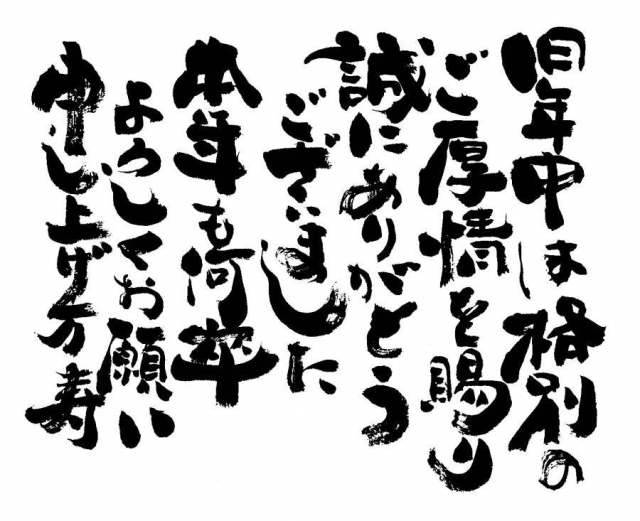 旧年中は格別の
ご厚情を賜り
誠にありがとう
ございました
本年も何卒
よろしくお願い
申し上げ万寿